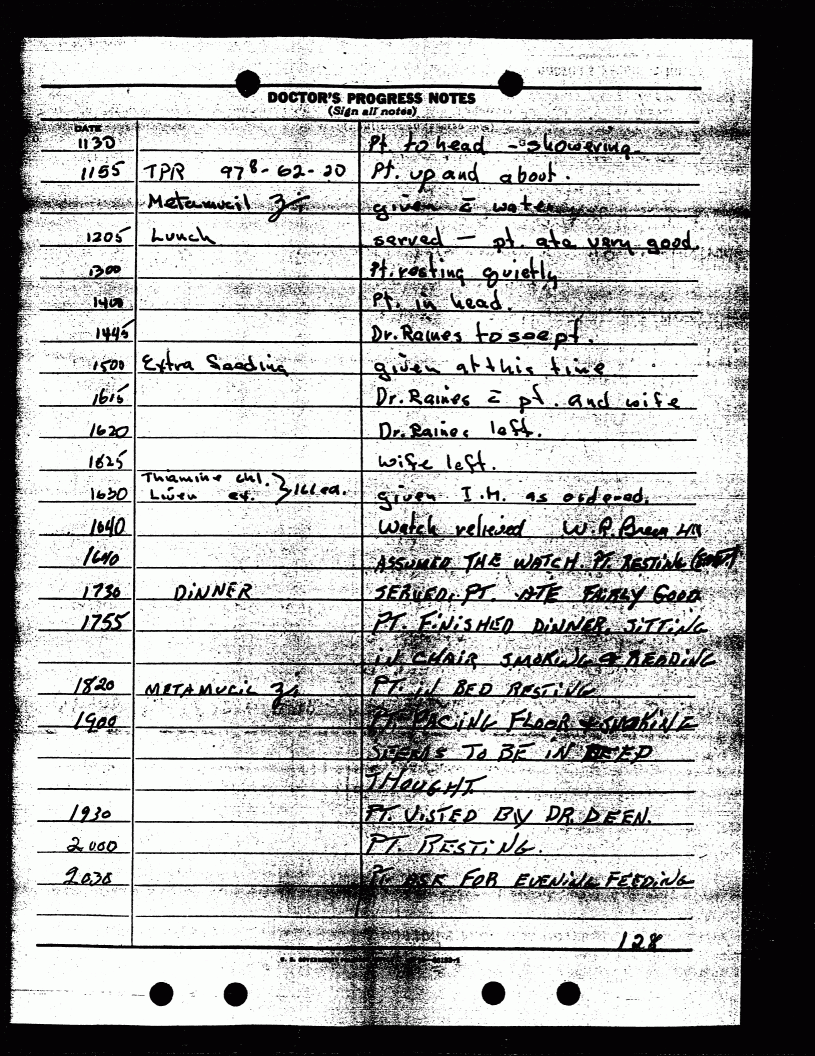 DOCTOR'S PROGRESS NOTES
(Sign all notes)
DATE
1130 Pt. to head - showering.
1155 TPR 97⁸-62-20 Pt. up and about.
Metamucil ʒ i given c̄ water
1205 Lunch served — pt. ate very good.
1300 Pt. resting quietly
1400 Pt. in head.
1445 Dr. Raines to see pt.
1500 Extra Feeding given at this time
1615 Dr. Raines c̄ pt. and wife
1620 Dr. Raines left.
1625 Wife left.
Thiamine chl.
1630 Liver ex. } 1cc ea. given I.M. as ordered.
1640 Watch relieved W.R.
1640 ASSUMED THE WATCH. PT. RESTING
1730 DINNER SERVED, PT. ATE FAIRLY GOOD
1755 PT. FINISHED DINNER, SITTING
IN CHAIR SMOKING & READING
1820 METAMUCIL ʒ i PT. IN BED RESTING
1900 PT PACING FLOOR & SMOKING
SEEMS TO BE IN DEEP
THOUGHT
1930 PT. VISTED BY DR. DEEN.
2000 PT. RESTING.
2030 PT. ASK FOR EVENING FEEDING
128